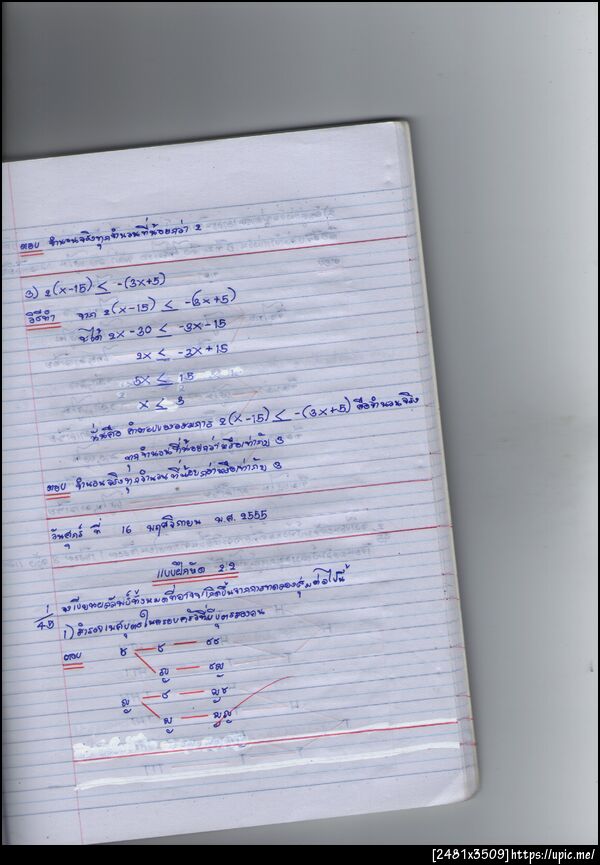 ตอบ จำนวนจริงทุกจำนวนที่น้อยกว่า 2
3) 2(x-15) ≤ -(3x+5)
วิธีทำ จาก 2(x-15) ≤ -(3x+5)
จะได้ 2x -30 ≤ -3x -15
2x ≤ -3x +15
5x ≤ 15
x ≤ 3
นั่นคือ คำตอบของอสมการ 2(x-15) ≤ -(3x+5) คือจำนวนจริง
ทุกจำนวนที่น้อยกว่าหรือเท่ากับ 3
ตอบ จำนวนจริงทุกจำนวนที่น้อยกว่าหรือเท่ากับ 3
วันศุกร์ ที่ 16 พฤศจิกายน พ.ศ. 2555
แบบฝึกหัด 2.2
1/45 จงเขียนผลลัพธ์ทั้งหมดที่อาจจะเกิดขึ้นจากการทดลองสุ่มต่อไปนี้
1) สำรวจเพศบุตรในครอบครัวที่มีบุตรสองคน
ตอบ ช ช ชช
ญ ชญ
ญ ช ญช
ญ ญญ
[2481x3509]https://upic.me/